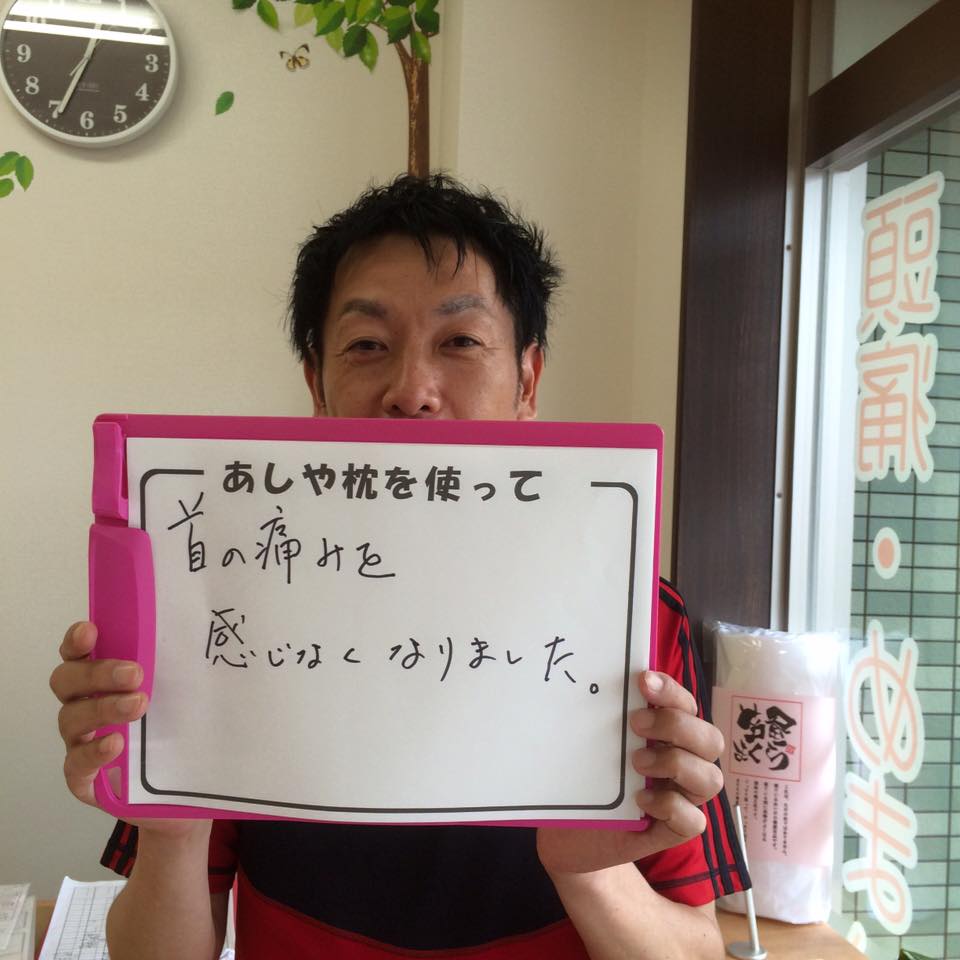 あしや枕を使って
首の痛みを
感じなくなりました。
頭痛・めま
10
9
8
7
6
5
4
3